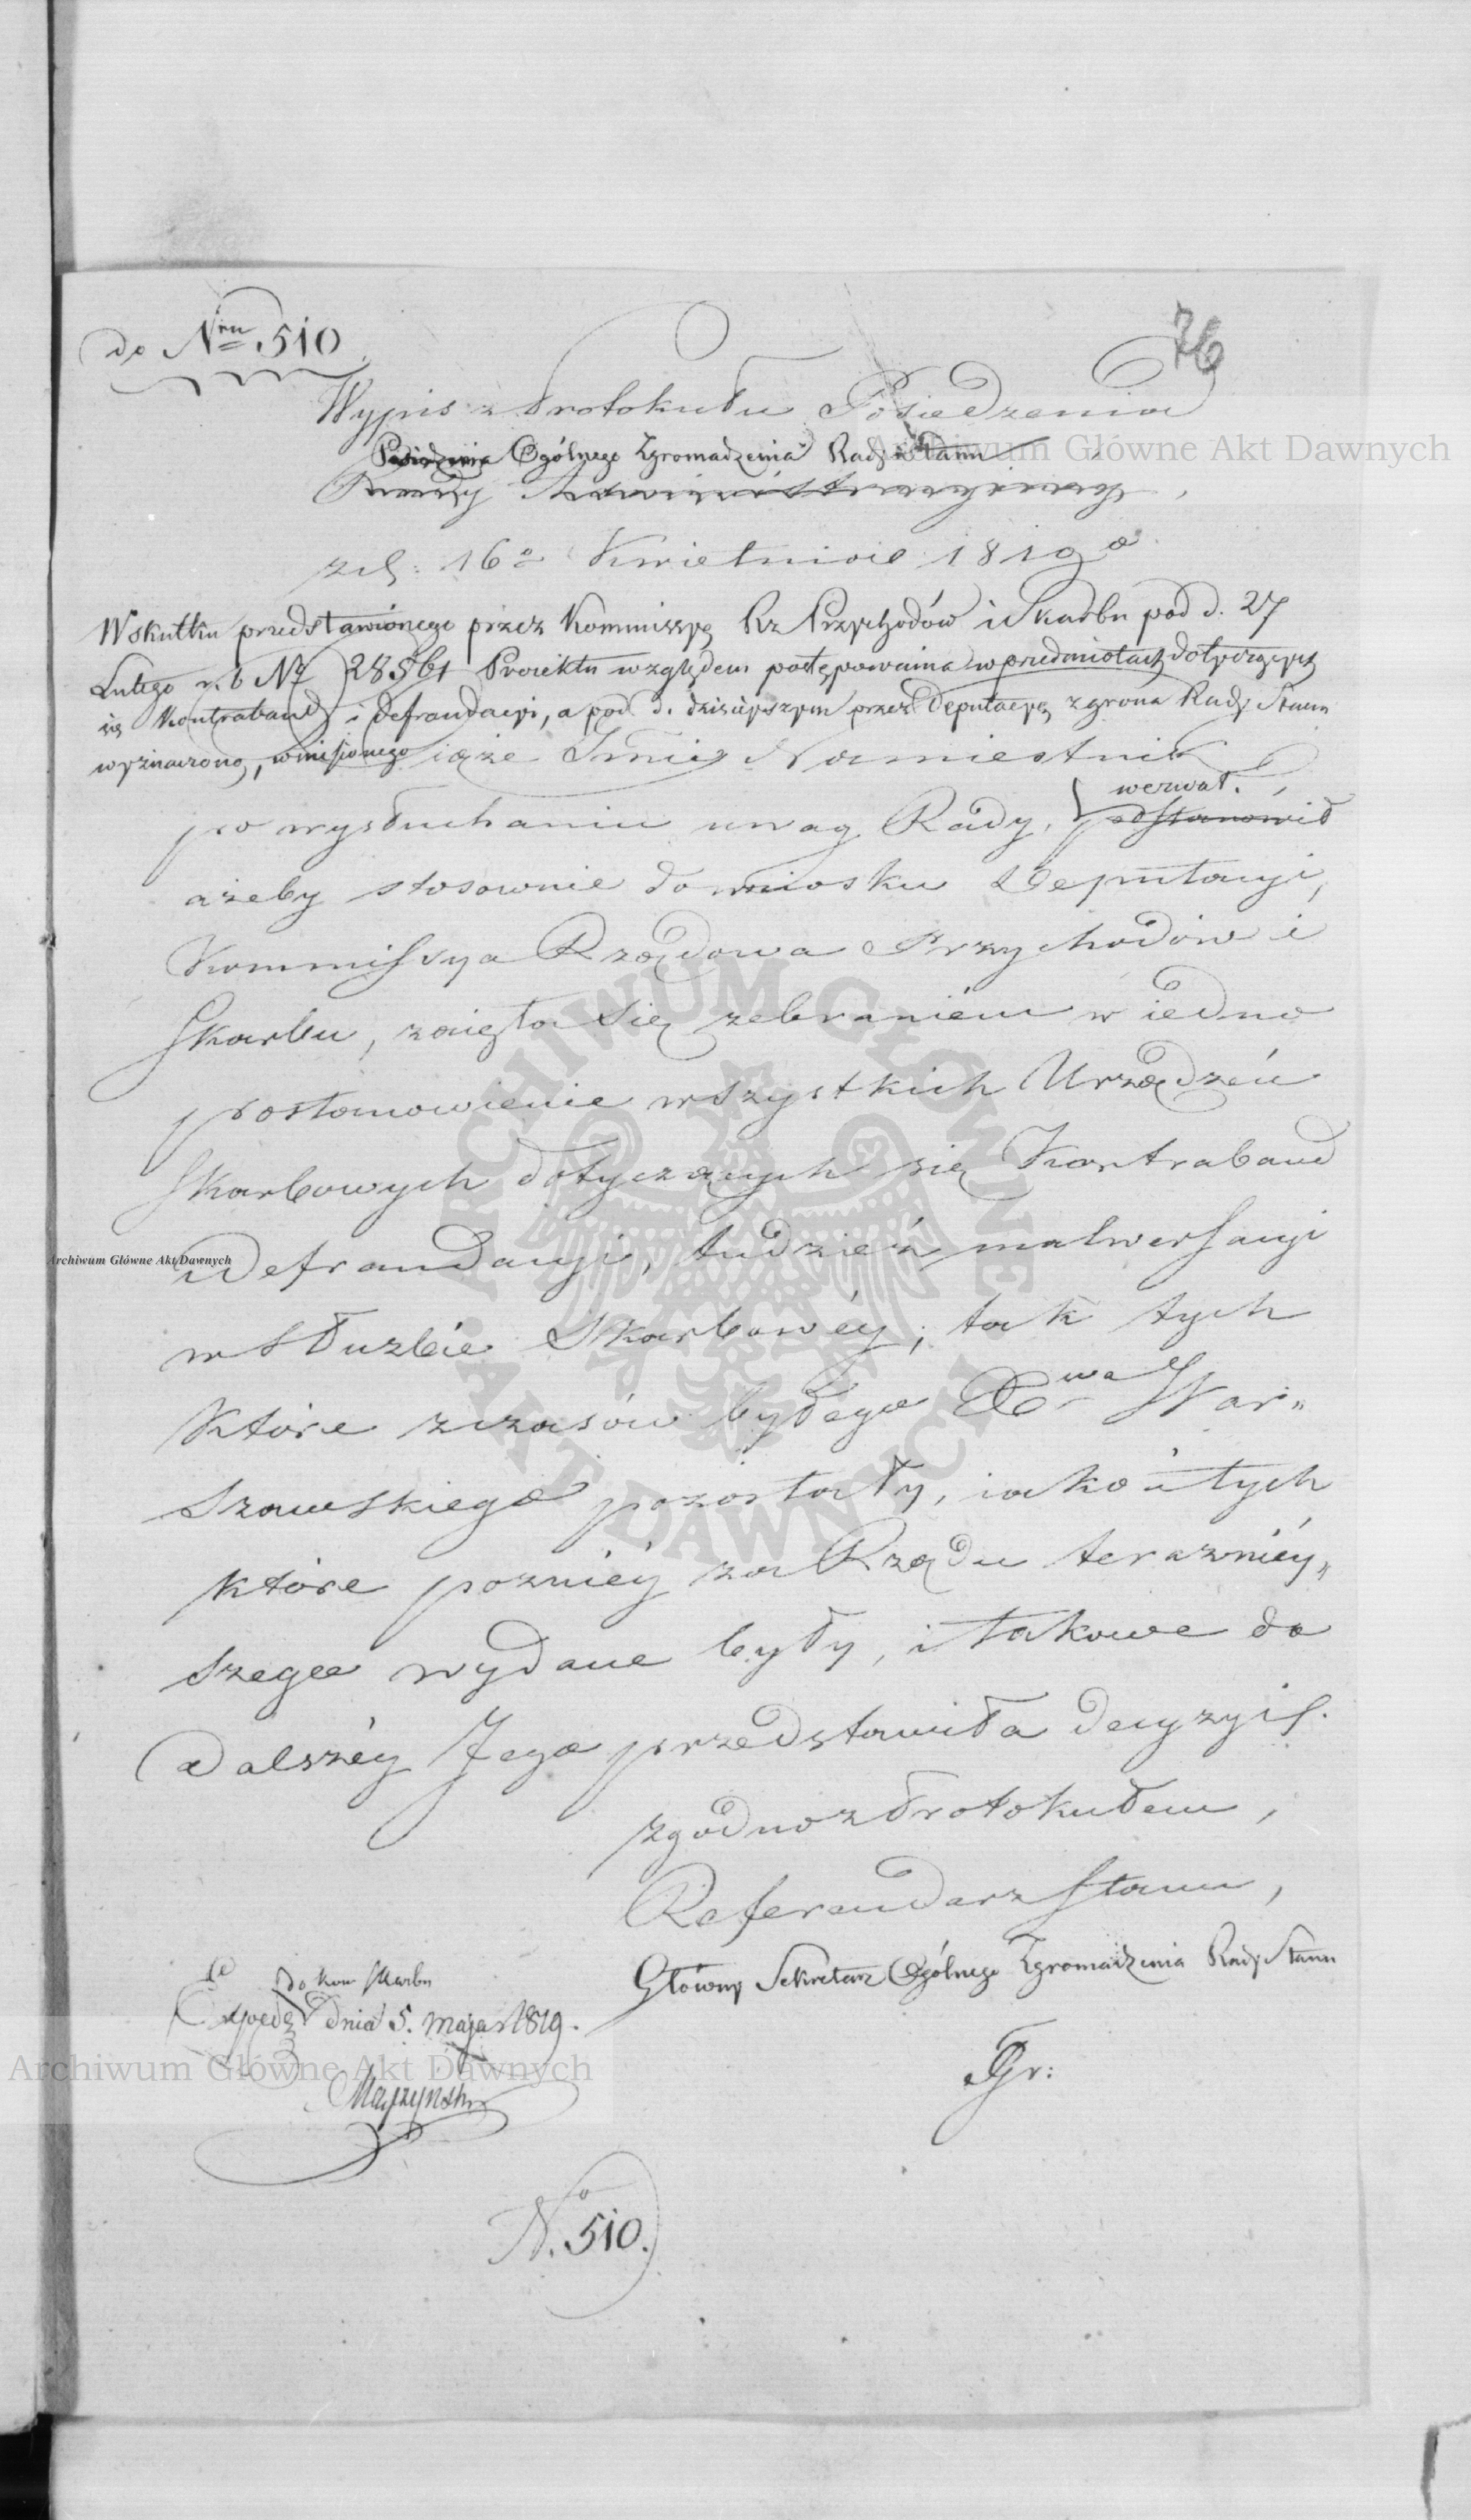 do Nru 510
76
Wypis z Protokułu Posiedzenia
Posiedzenia Ogólnego Zgromadzenia Rady Stanu
Rady Administracyiney,
z d: 16o Kwietnia 1819o
Wskutku przedstawionego przez Kommissyę Rz Przychodów i Skarbu pod d. 27
Lutego r. b No 28561 Proiektu względem postępowania w przedmiotach dotyczących
się Kontraband i defraudacyi, a pod d. dzisieyszym przez Deputacyę z grona Rady Stanu
wyznaczoną, wniesionego iąże Jmć Namiestnik
wezwał.
po wysłuchaniu uwag Rady, postanowił
ażeby stosownie do wniosku Deputacyi,
Kommissya Rządowa Przychodów i
Skarbu, zaięła się zebraniem w iedno
postanowienie wszystkich Urządzeń
Skarbowych dotyczących się Kontraband
i Defraudacyi, tudzież malwersacyi
w Służbie Skarbowéy; tak tych
które z czasów byłego Xwa War„
szawskiego pozostały, iako i tych
które poznieý za Rządu terazniéy„
szego wydane były, i takowe do
dalszéy Jego przedstawiła decyzyi.
zgodno z Protokułem,
Referendarz Stanu,
Główny Sekretarz Ogólnego Zgromadzenia Rady Stanu
Gr:
do Kom Skarbu
Exped. dnia 5. maja 1819.
No. 510.
Archiwum Główne Akt Dawnych
Archiwum Główne Akt Dawnych
Archiwum Główne Akt Dawnych
ARCHIWUM GŁÓWNE
AKT DAWNYCH